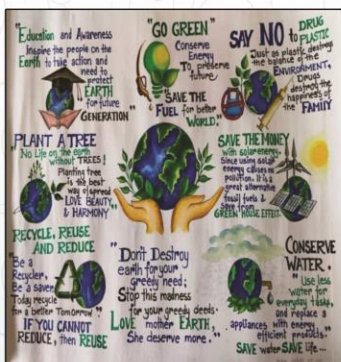 "Education and Awareness
Inspire the people on the
Earth to take action and
need to
protect
EARTH
for future
GENERATION"
"GO GREEN"
Conserve
Energy
To preserve
future
"SAVE THE
FUEL for better
WORLD."
SAY NO to DRUG
to PLASTIC
Just as plastic destroys
the balance of the
ENVIRONMENT,
Drugs
destroy the
happiness of
the FAMILY
PLANT A TREE
No Life on the earth
without TREES!
Planting tree
is the best
way of spread
LOVE BEAUTY
& HARMONY"
SAVE THE MONEY
with solar energy.
Since using solar
energy causes no
pollution. it is a
great alternative
fossil fuels &
save from
GREEN HOUSE EFFECT.
RECYCLE, REUSE
AND REDUCE
"Be a
Recycler,
Be a saver
Today recycle
for a better Tomorrow"
IF YOU CANNOT
REDUCE, then REUSE
"Don't Destroy
earth for your
greedy need;
Stop this madness
for your greedy deeds.
LOVE mother EARTH,
She deserve more."
CONSERVE
WATER.
Use less
water for
everyday tasks,
and replace a
appliances with energy
efficient products.
SAVE water SAVE life...